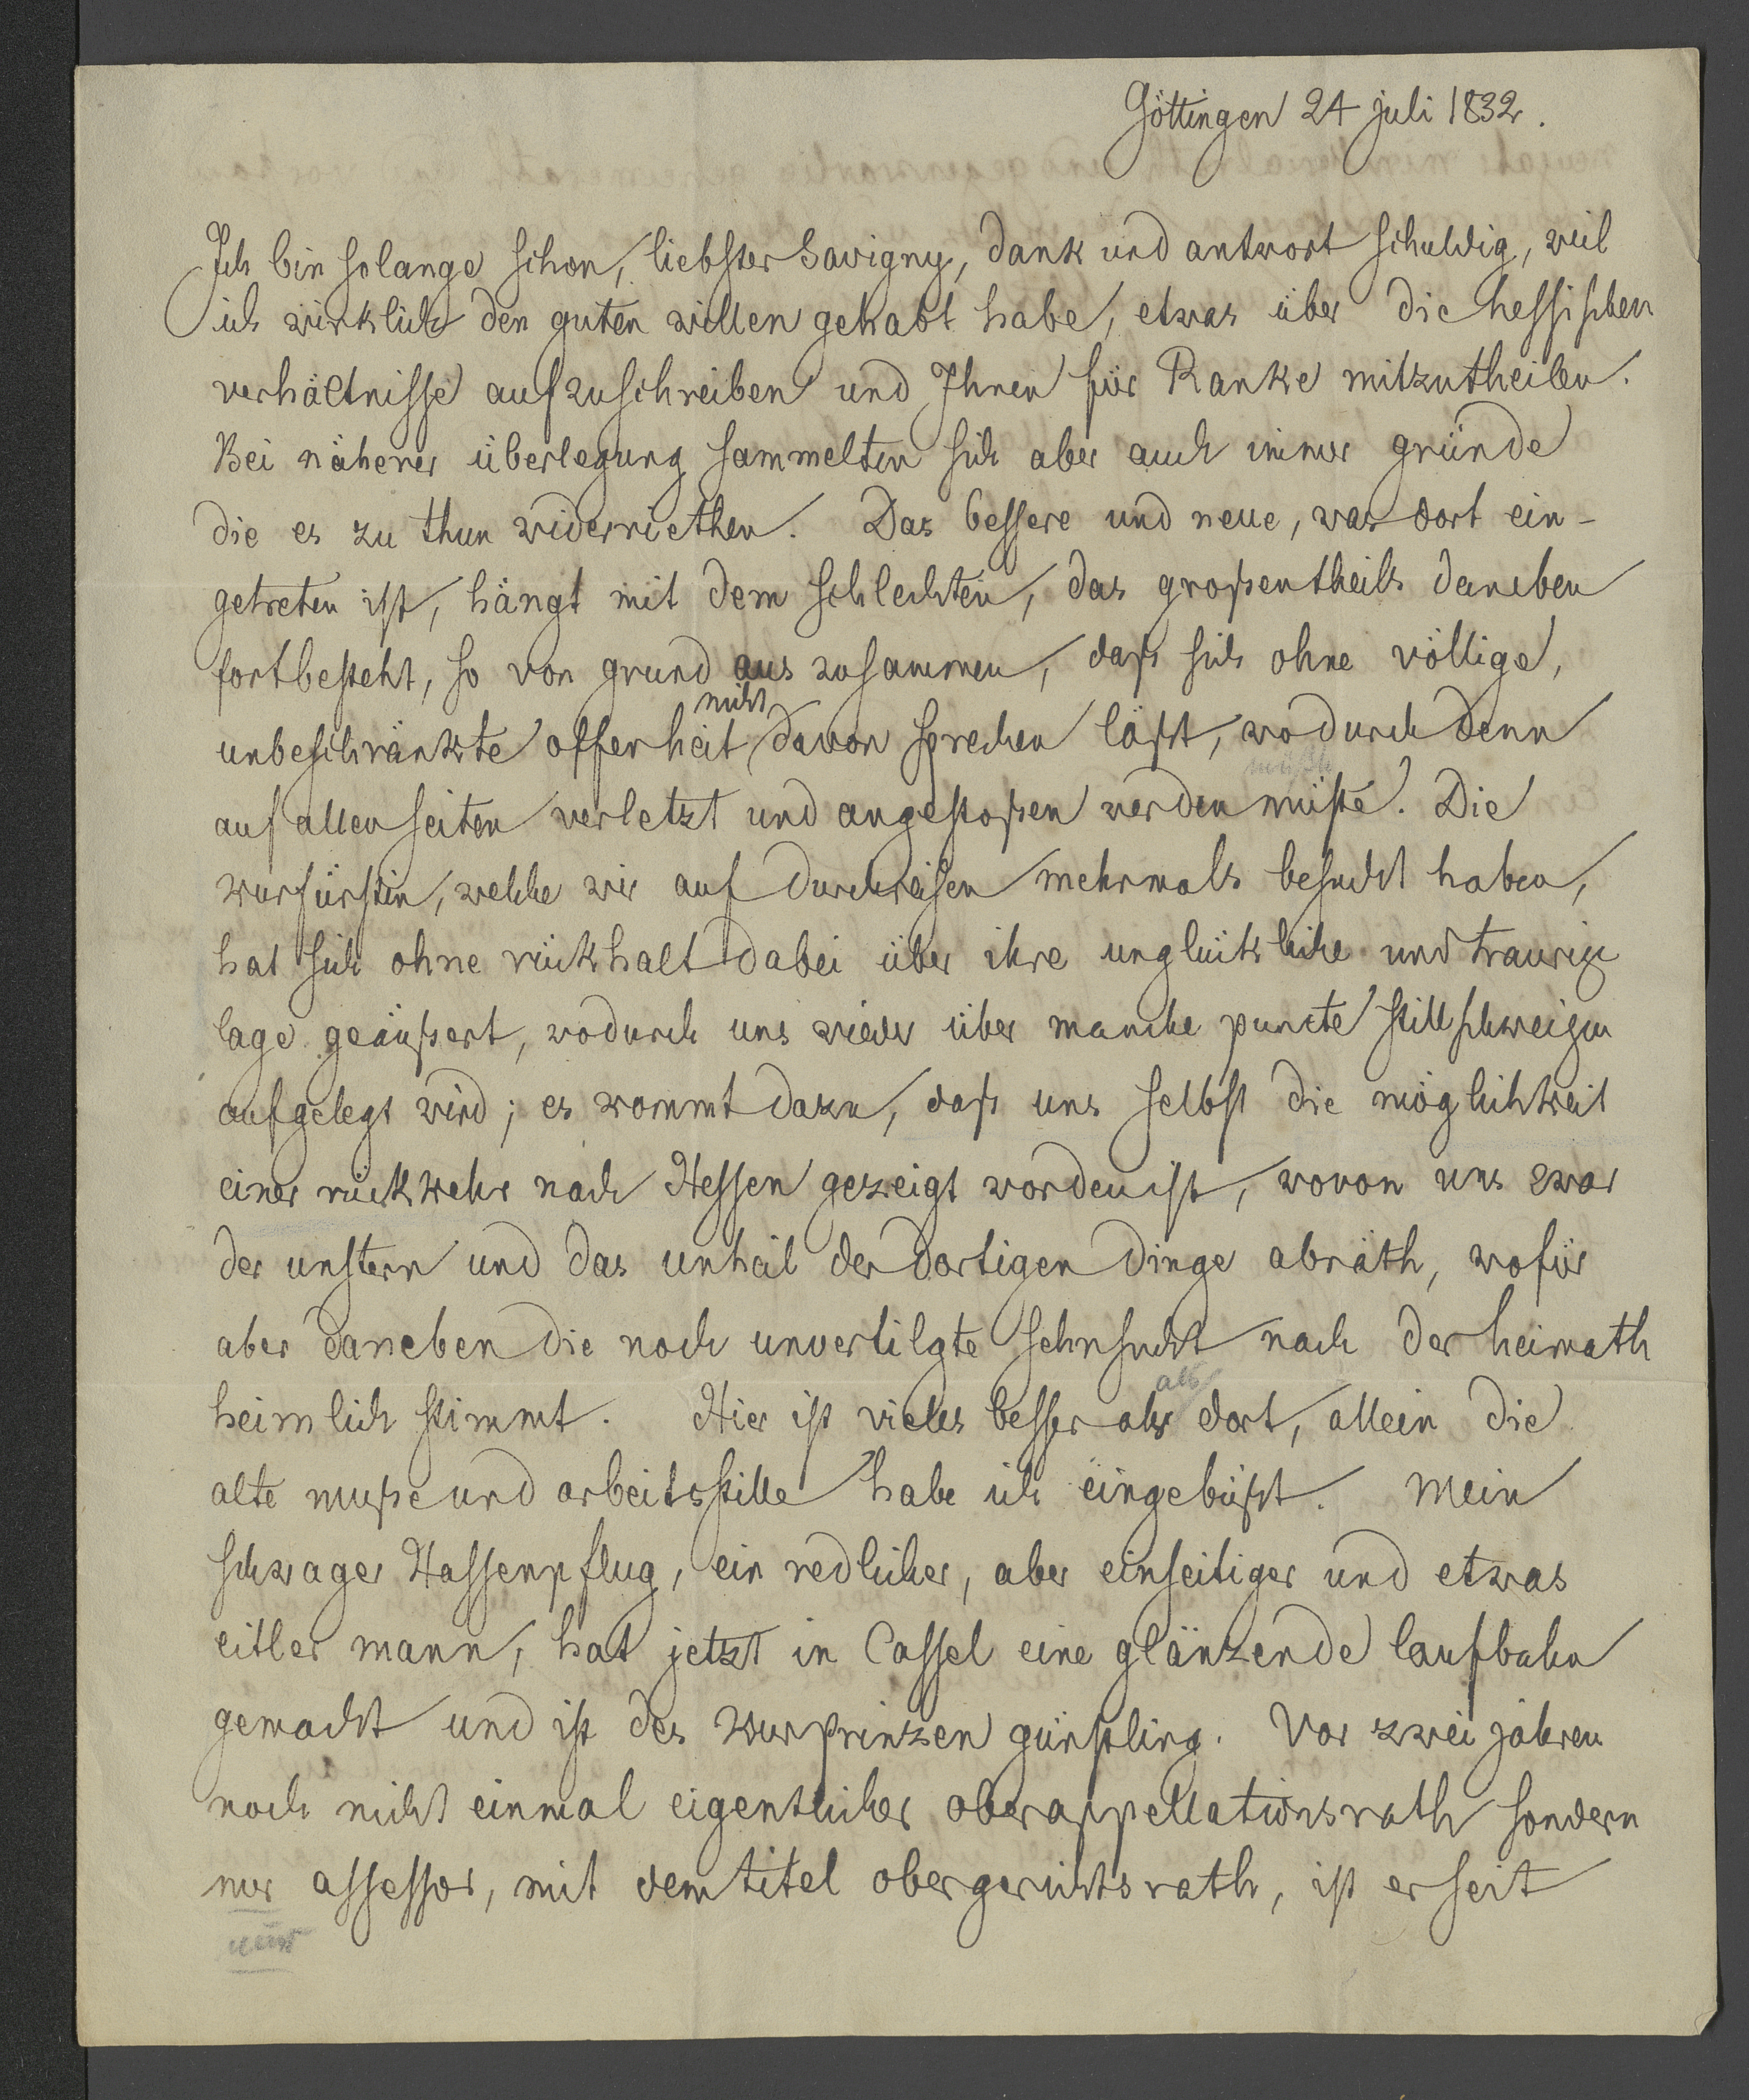 Göttingen 24 juli 1832.
Ich bin solange schon, liebster Savigny, dank und antwort schuldig, weil
ich wirklich den guten willen gehabt habe, etwas über die hessischen
verhältnisse aufzuschreiben und Ihnen für Ranke mitzutheilen.
Bei näherer überlegung sammelten sich aber auch immer gründe
die es zu thun widerriethen. Das bessere und neue, was dort ein-
getreten ist, hängt mit dem schlechten, das großentheils daneben
fortbesteht, so von grund aus zusammen, daß sich ohne völlige,
nicht
unbeschränkte offenheit davon sprechen läßt, wodurch denn
müßte
auf allen seiten verletzt und angestoßen werden müste. Die
kurfürstin, welche wir auf durchreisen mehrmals besucht haben,
hat sich ohne rückhalt dabei über ihre unglückliche und traurige
lage geäußert, wodurch uns wieder über manche puncte stillschweigen
aufgelegt wird; es kommt dazu, daß uns selbst die möglichkeit
einer rückkehr nach Hessen gezeigt worden ist, wovon uns zwar
der unstern und das unheil der dortigen dinge abräth, wofür
aber daneben die noch unvertilgte sehnsucht nach der heimath
als
heimlich stimmt. Hier ist vieles besser als dort, allein die
alte muße und arbeitsstille habe ich eingebüßt. Mein
schwager Hassenpflug, ein redlicher, aber einseitiger und etwas
eitler mann, hat jetzt in Cassel eine glänzende laufbahn
gemacht und ist des kurprinzen günstling. Vor zwei jahren
noch nicht einmal eigentlicher oberappellationsrath sondern
nur assessor, mit dem titel obergerichtsrath, ist er seit
nur